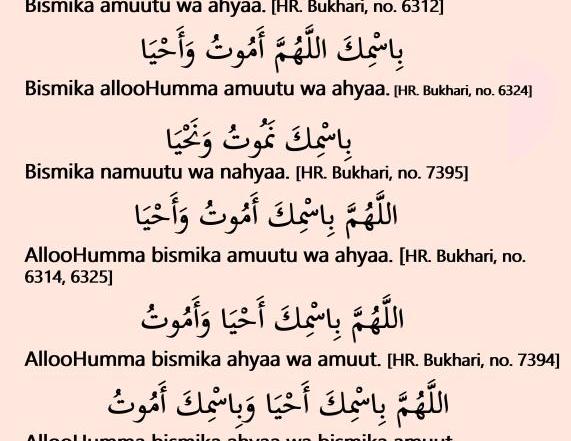 Bismika amuutu wa ahyaa. [HR. Bukhari, no. 6312]
بِاسْمِكَ اللَّهُمَّ أَمُوتُ وَأَحْيَا
Bismika allooHumma amuutu wa ahyaa. [HR. Bukhari, no. 6324]
بِاسْمِكَ نَمُوتُ وَنَحْيَا
Bismika namuutu wa nahyaa. [HR. Bukhari, no. 7395]
اللَّهُمَّ بِاسْمِكَ أَمُوتُ وَأَحْيَا
AllooHumma bismika amuutu wa ahyaa. [HR. Bukhari, no.
6314, 6325]
اللَّهُمَّ بِاسْمِكَ أَحْيَا وَأَمُوتُ
AllooHumma bismika ahyaa wa amuut. [HR. Bukhari, no. 7394]
اللَّهُمَّ بِاسْمِكَ أَحْيَا وَبِاسْمِكَ أَمُوتُ
AllooHumma bismika ahyaa wa bismika amuut.